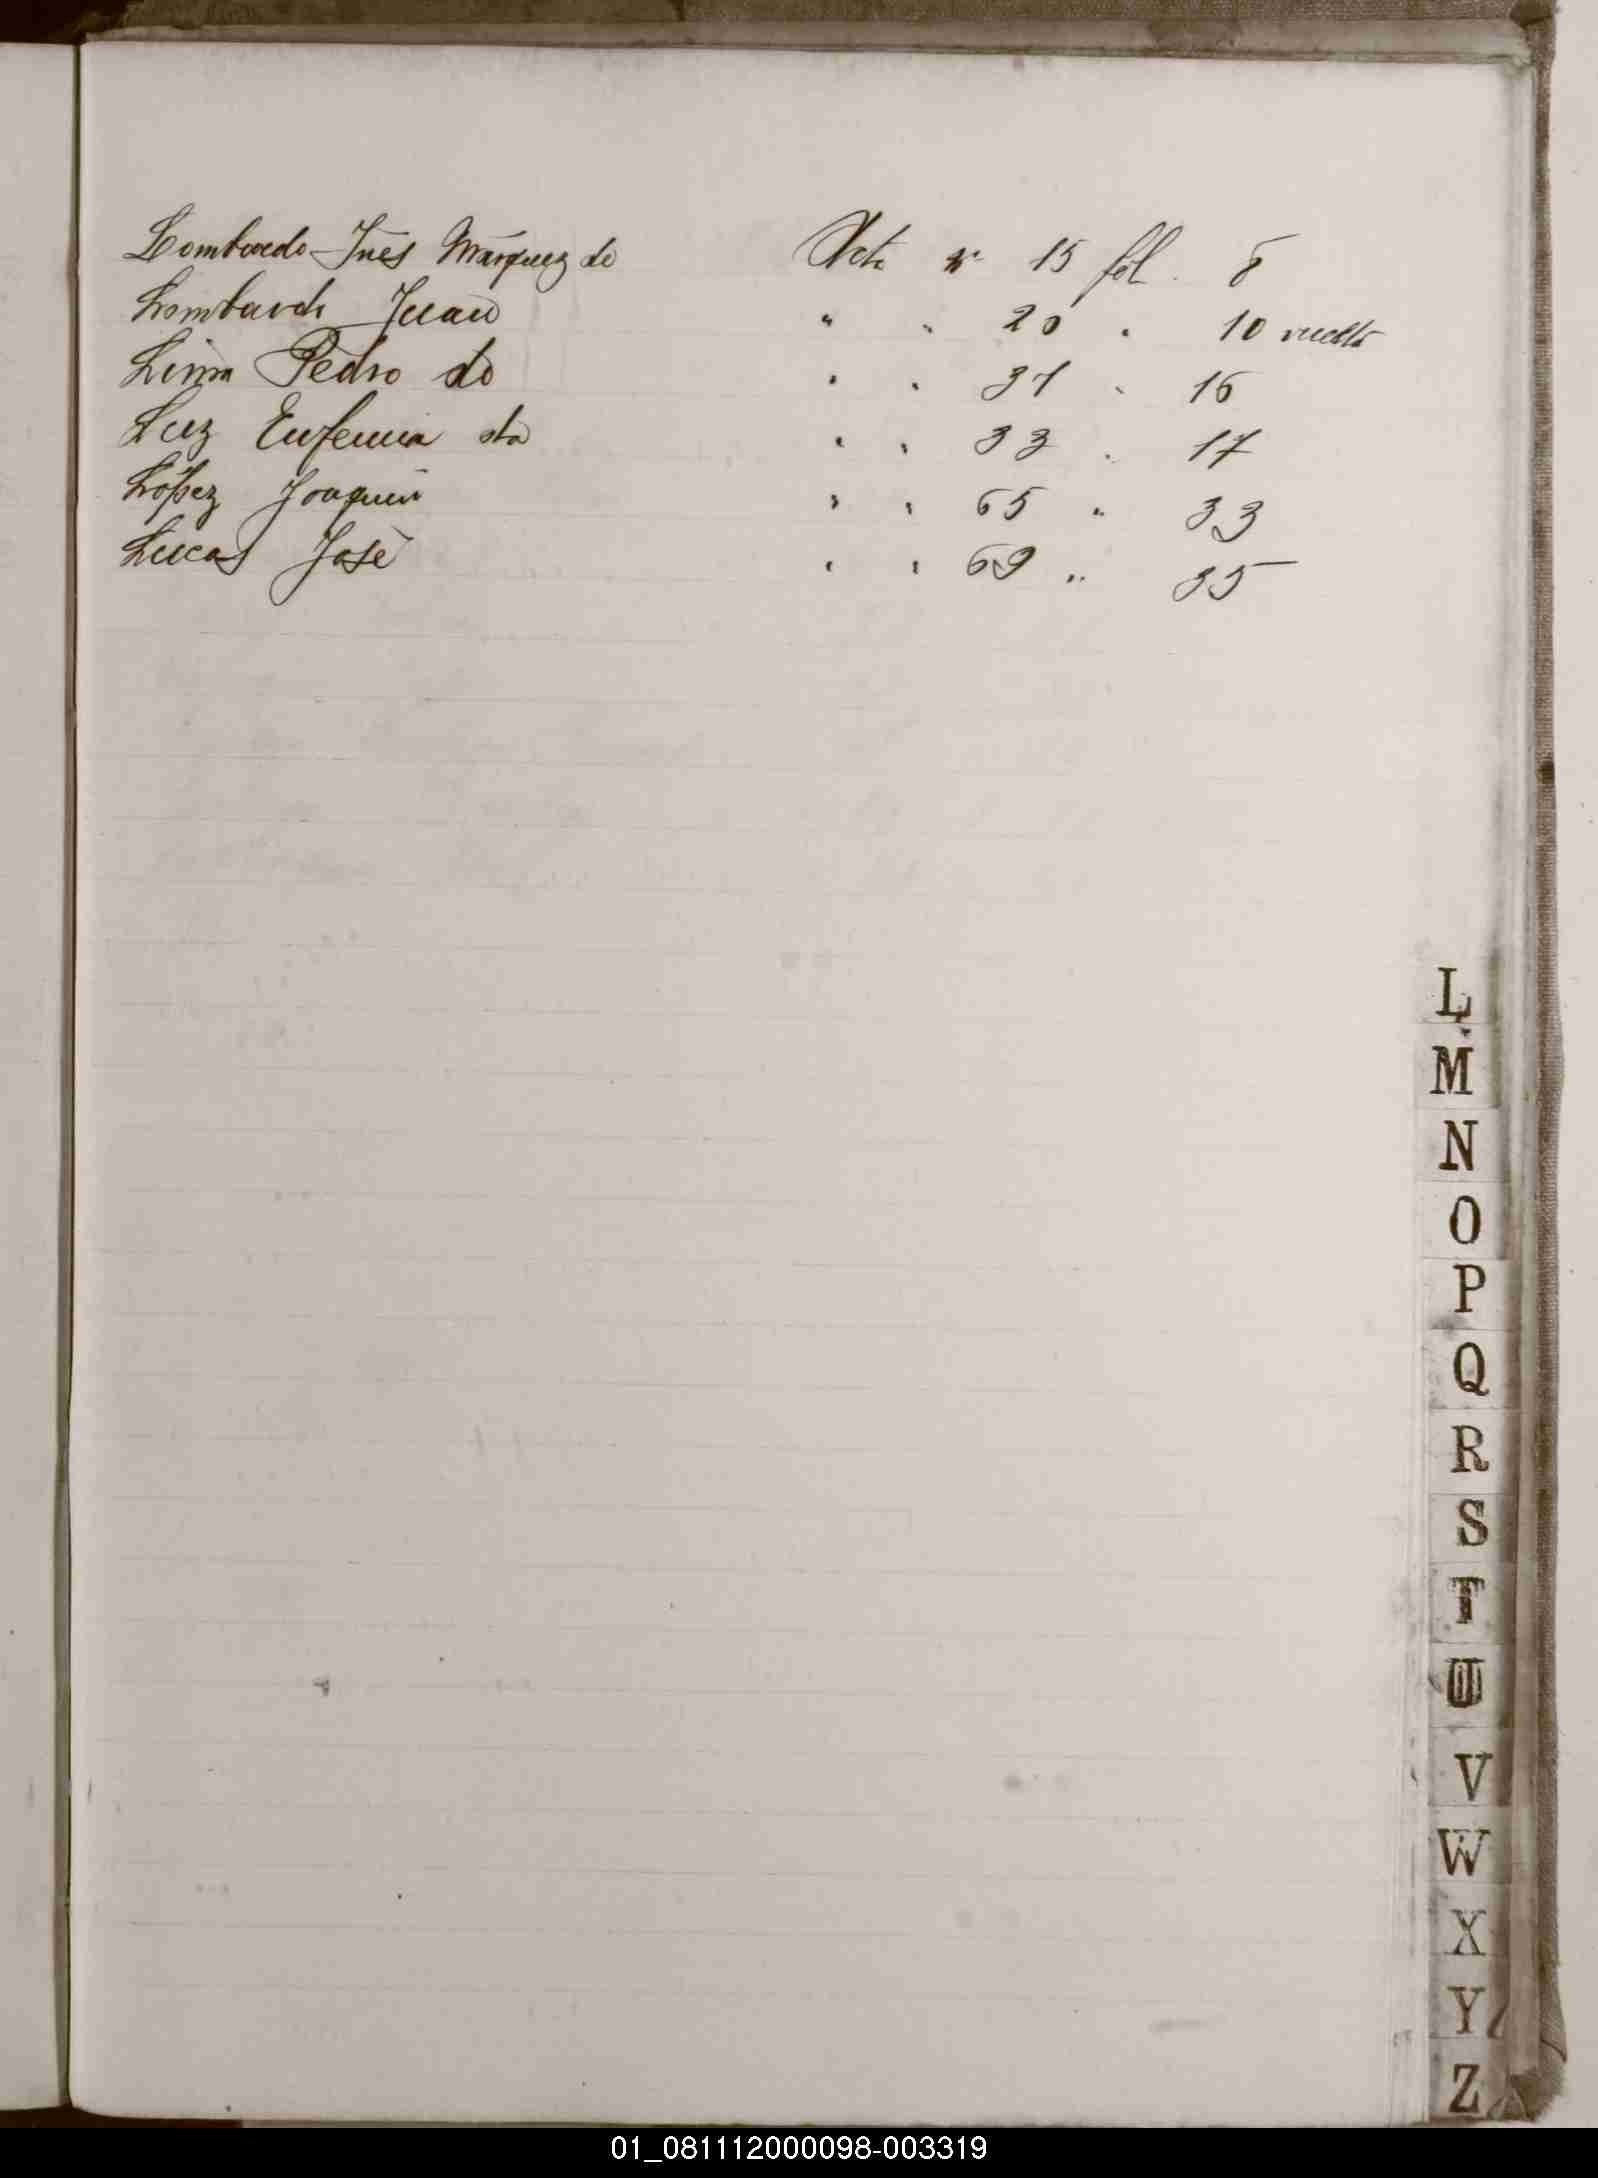 Lombardo Inés Márquez de Acta nº 15 fol. 8
Lombardi Juan " " 20 " 10 vuelta
Lima Pedro de " " 31 " 16
Luz Eufemia da " " 33 " 17
López Joaquin " " 65 " 33
Lucas José " " 69 " 35
L
M
N
O
P
Q
R
S
T
U
V
W
X
Y
Z
01_081112000098-003319